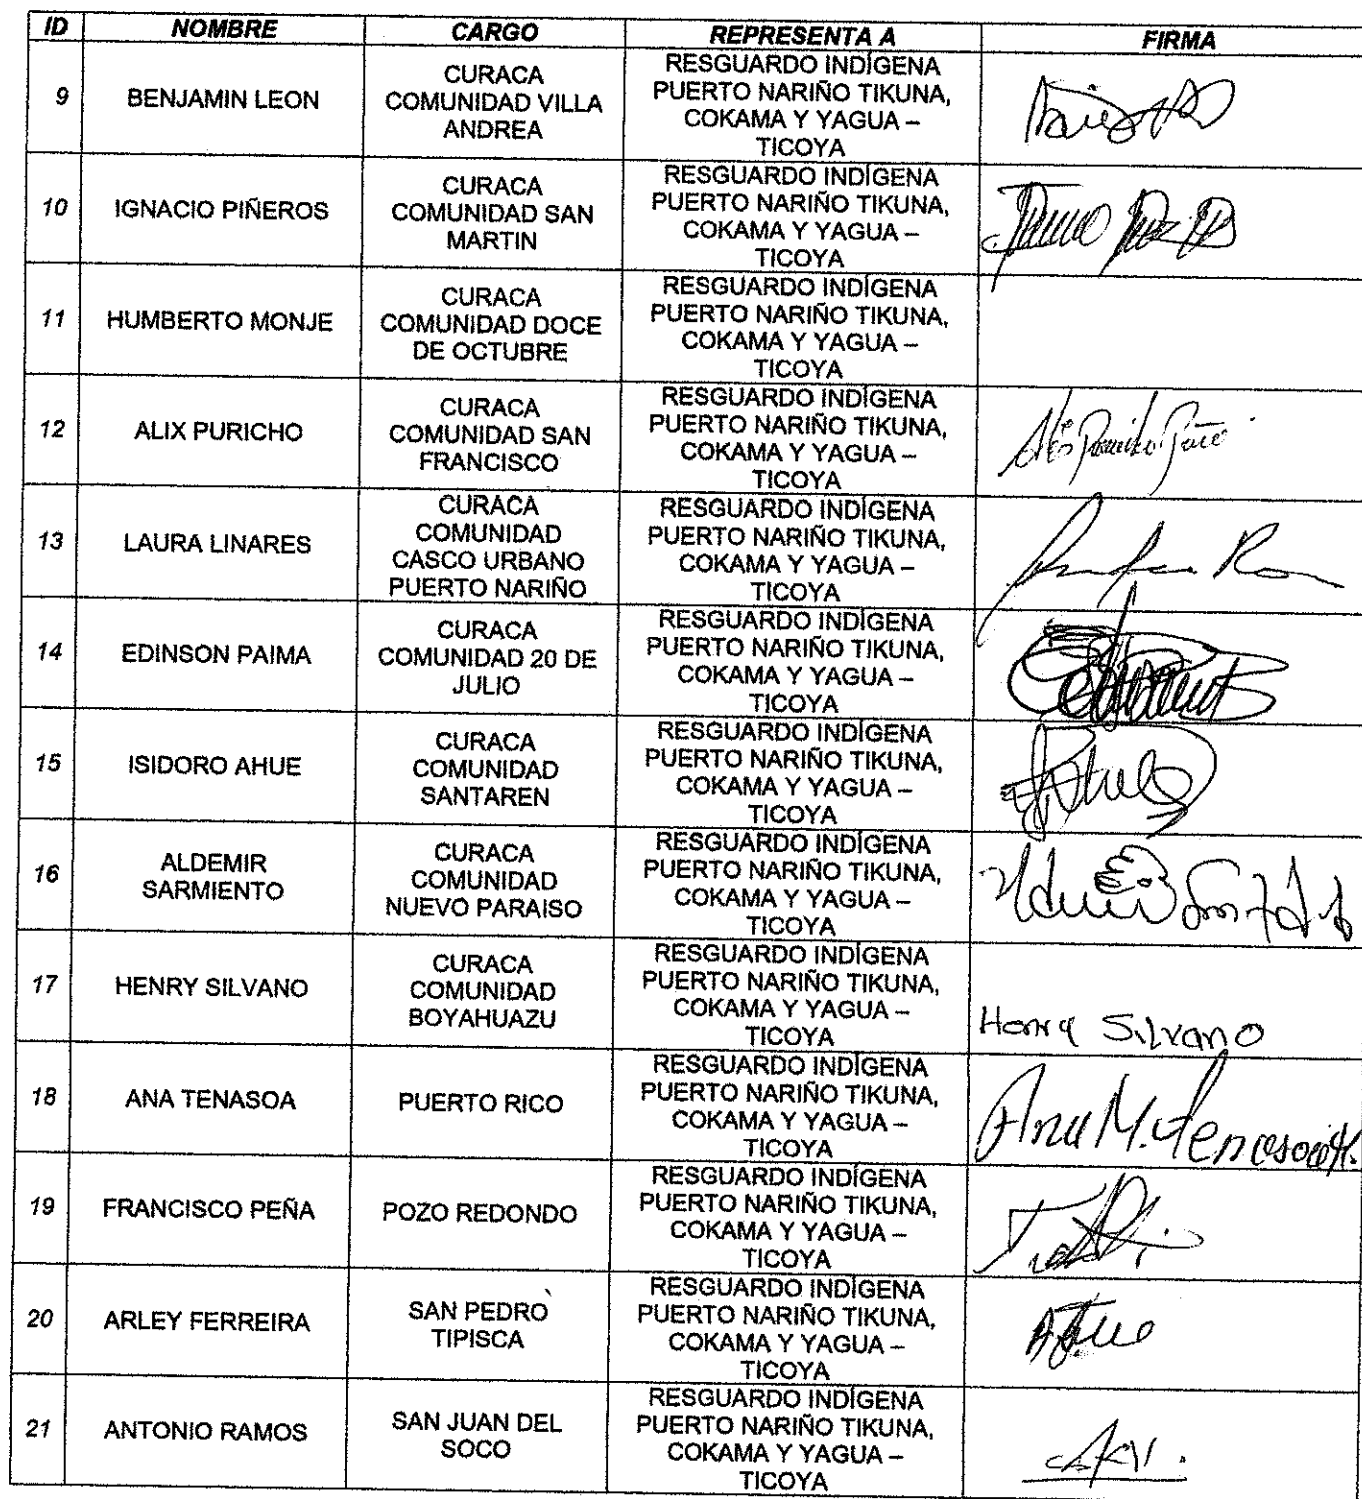 ID NOMBRE CARGO REPRESENTA A FIRMA
9 BENJAMIN LEON CURACA COMUNIDAD VILLA ANDREA RESGUARDO INDÍGENA PUERTO NARIÑO TIKUNA, COKAMA Y YAGUA – TICOYA
10 IGNACIO PIÑEROS CURACA COMUNIDAD SAN MARTIN RESGUARDO INDÍGENA PUERTO NARIÑO TIKUNA, COKAMA Y YAGUA – TICOYA
11 HUMBERTO MONJE CURACA COMUNIDAD DOCE DE OCTUBRE RESGUARDO INDÍGENA PUERTO NARIÑO TIKUNA, COKAMA Y YAGUA – TICOYA
12 ALIX PURICHO CURACA COMUNIDAD SAN FRANCISCO RESGUARDO INDÍGENA PUERTO NARIÑO TIKUNA, COKAMA Y YAGUA – TICOYA
13 LAURA LINARES CURACA COMUNIDAD CASCO URBANO PUERTO NARIÑO RESGUARDO INDÍGENA PUERTO NARIÑO TIKUNA, COKAMA Y YAGUA – TICOYA
14 EDINSON PAIMA CURACA COMUNIDAD 20 DE JULIO RESGUARDO INDÍGENA PUERTO NARIÑO TIKUNA, COKAMA Y YAGUA – TICOYA
15 ISIDORO AHUE CURACA COMUNIDAD SANTAREN RESGUARDO INDÍGENA PUERTO NARIÑO TIKUNA, COKAMA Y YAGUA – TICOYA
16 ALDEMIR SARMIENTO CURACA COMUNIDAD NUEVO PARAISO RESGUARDO INDÍGENA PUERTO NARIÑO TIKUNA, COKAMA Y YAGUA – TICOYA
17 HENRY SILVANO CURACA COMUNIDAD BOYAHUAZU RESGUARDO INDÍGENA PUERTO NARIÑO TIKUNA, COKAMA Y YAGUA – TICOYA Henry Silvano
18 ANA TENASOA PUERTO RICO RESGUARDO INDÍGENA PUERTO NARIÑO TIKUNA, COKAMA Y YAGUA – TICOYA Ana M. Tenasoa H.
19 FRANCISCO PEÑA POZO REDONDO RESGUARDO INDÍGENA PUERTO NARIÑO TIKUNA, COKAMA Y YAGUA – TICOYA
20 ARLEY FERREIRA SAN PEDRO TIPISCA RESGUARDO INDÍGENA PUERTO NARIÑO TIKUNA, COKAMA Y YAGUA – TICOYA
21 ANTONIO RAMOS SAN JUAN DEL SOCO RESGUARDO INDÍGENA PUERTO NARIÑO TIKUNA, COKAMA Y YAGUA – TICOYA